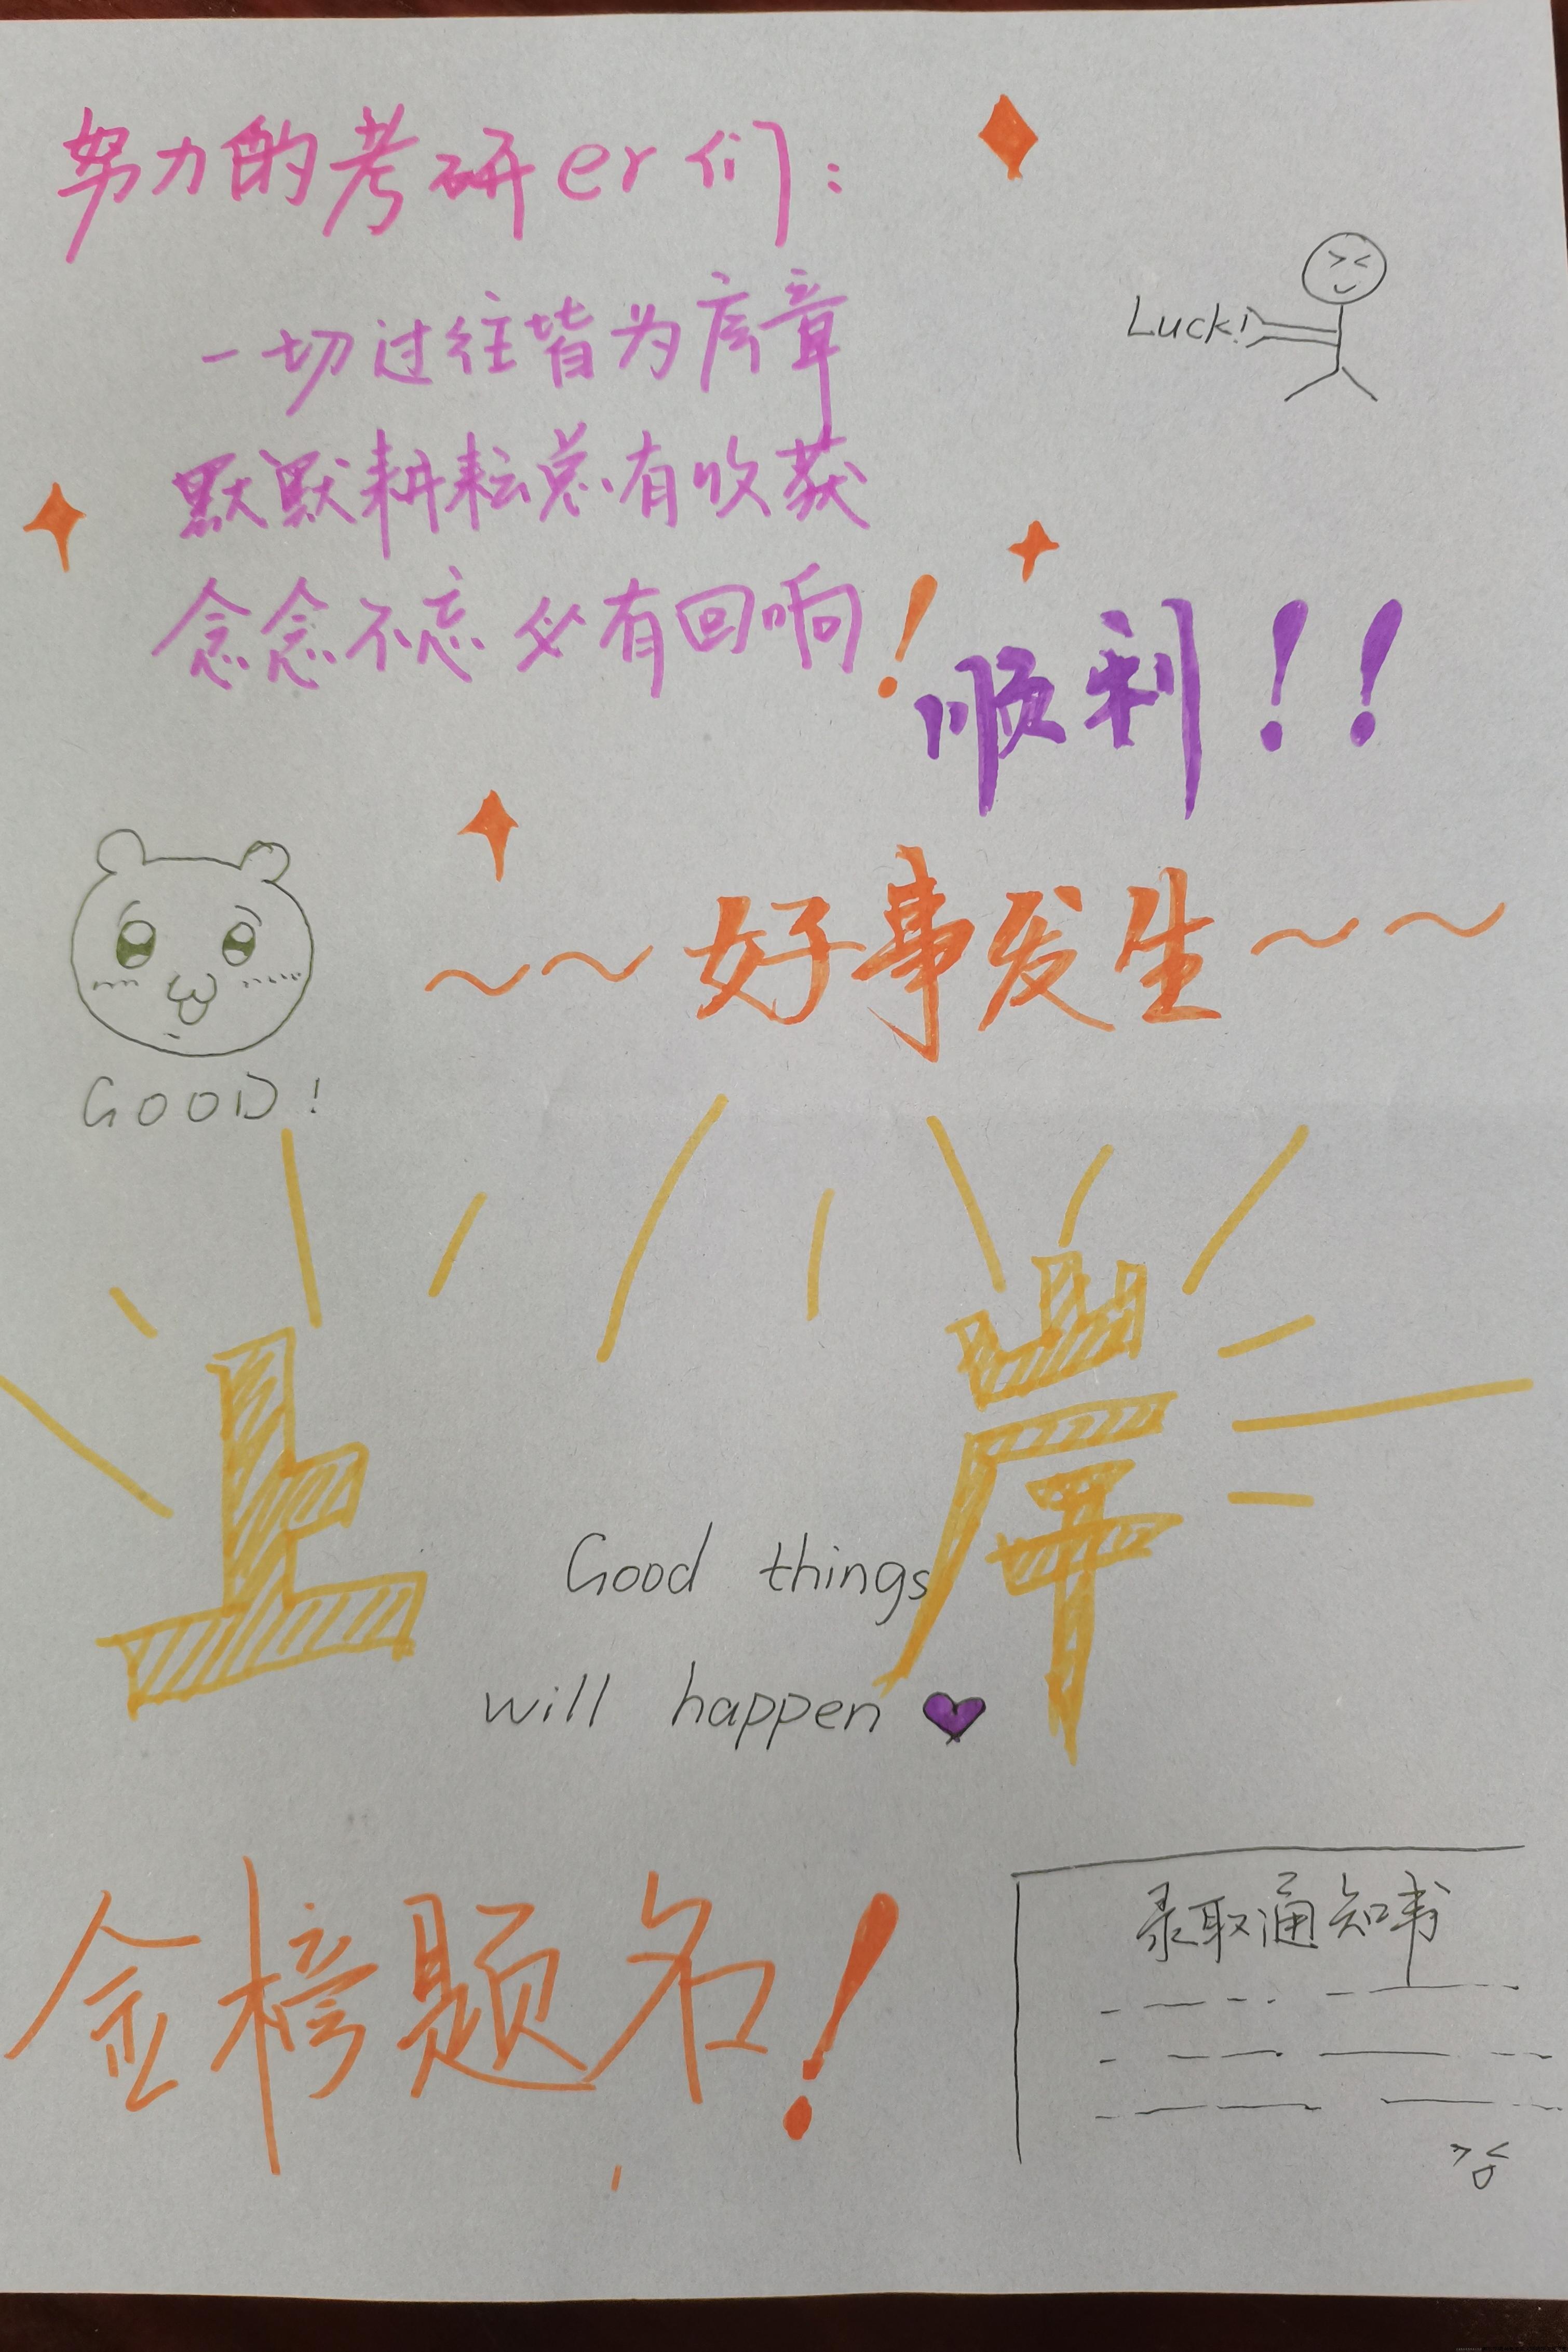 努力的考研er们:
Luck!
一切过往皆为序章
默默耕耘总有收获
念念不忘必有回响!
顺利!!
~~好事发生~~
GOOD!
上岸
Good things
will happen
金榜题名!
录取通知书